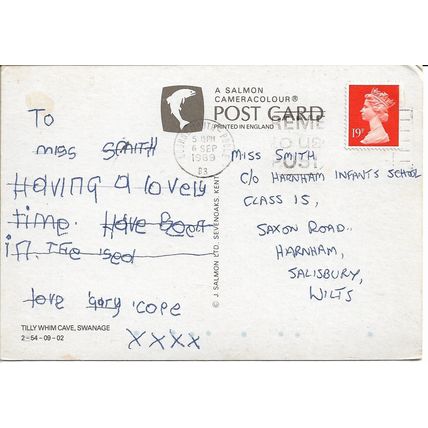 A SALMON
CAMERACOLOUR®
POST CARD
PRINTED IN ENGLAND
To
miss Smith
Having a lovely
time. Have been
in. The sea
love gary cope
xxxx
TILLY WHIM CAVE, SWANAGE
2-54-09-02
© J. SALMON LTD. SEVENOAKS, KENT
5-PM
6 SEP
1989
19P
MISS SMITH
C/O HARNHAM INFANTS SCHOOL
CLASS 15,
SAXON ROAD.
HARNHAM,
SALISBURY,
WILTS